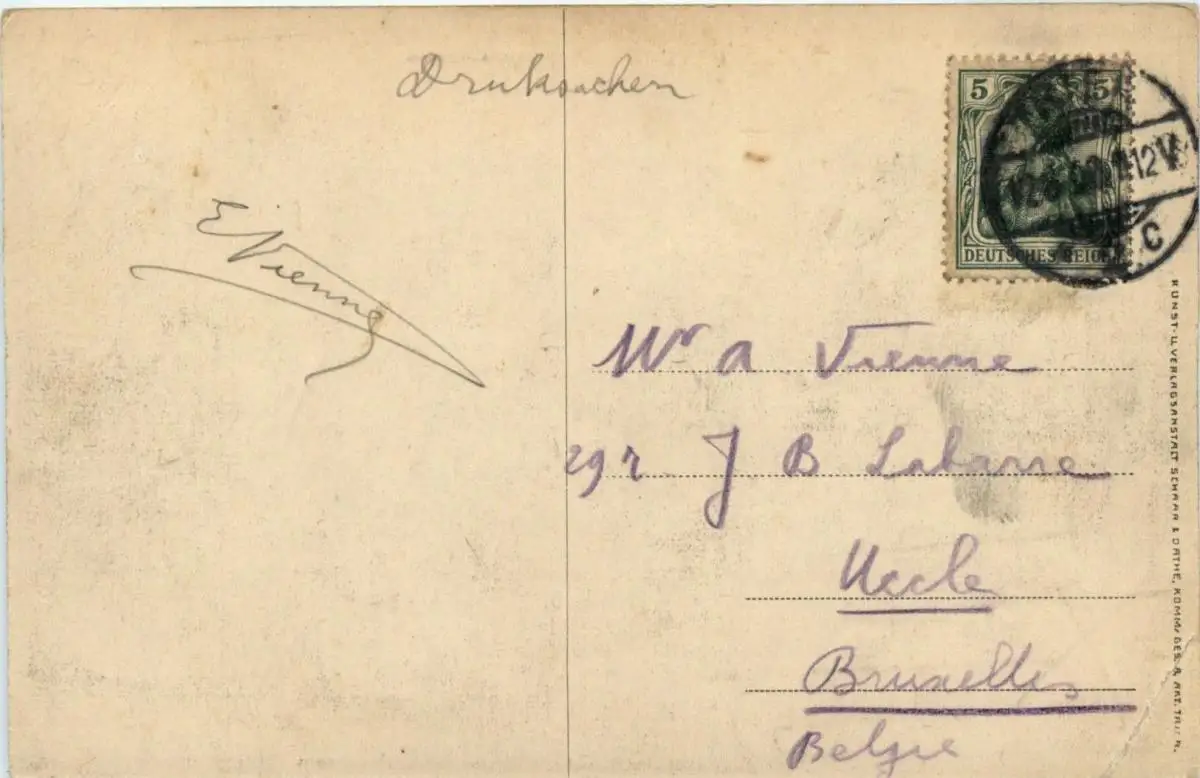 Druksachen
5 5
DEUTSCHES REICH
12 V
C
E Vienne
Mr A Vienne
291 J B Labarre
Uccle
Bruxelles
Belgie
KUNST- U. VERLAGSANSTALT SCHAAR & DATHE, KOMM. GES. A. AKT. TRIER.